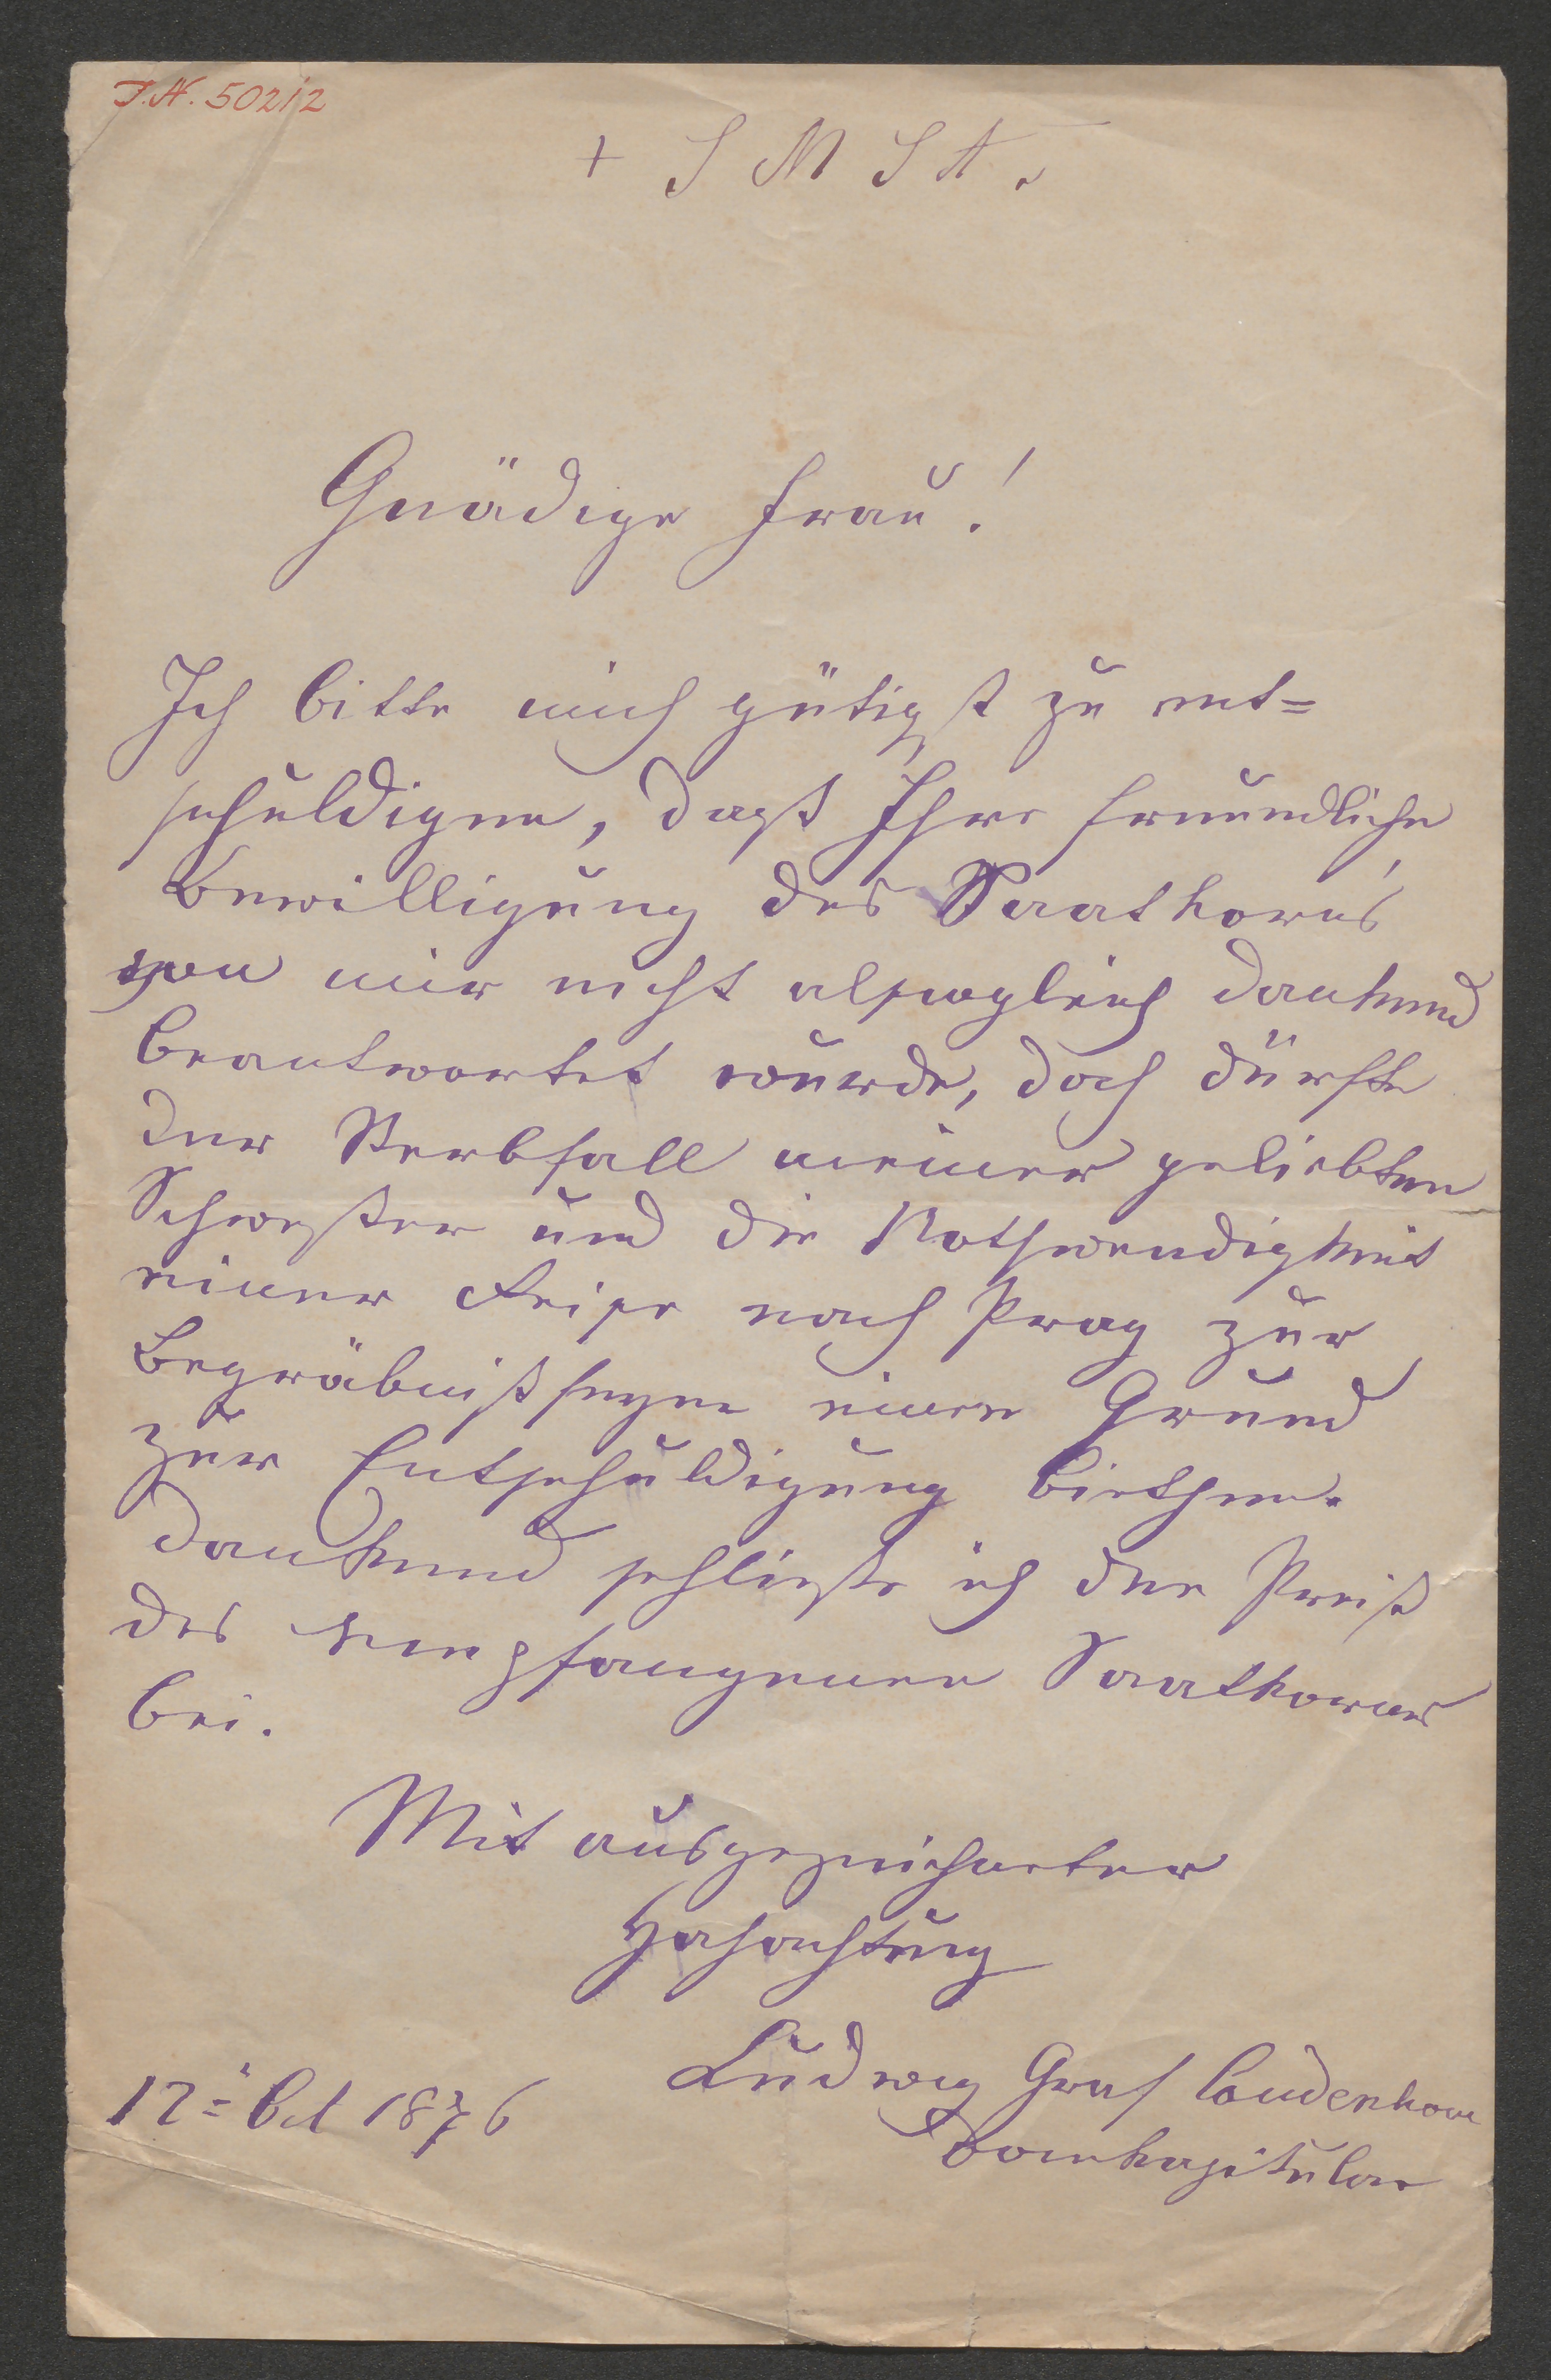 I.N. 50212
+ J M J A.
Gnädige Frau!
Ich bitte mich gütigst zu ent=
schuldigen, daß Ihre freundliche
Bewilligung des Saatkorns
von mir nicht alsogleich dankend
beantwortet wurde, doch dürfte
der Sterbfall meiner geliebten
Schwester und die Nothwendigkeit
einer Reise nach Prag zur
Begräbniß segne einen Grund
zur Entschuldigung biethen.
Dankend schließe ich den Preiß
des empfangenen Saatkornes
bei.
Mit ausgezeichneter
Hochachtung
Ludwig Graf Coudenhove
Domkapitular
12= Oct 1876